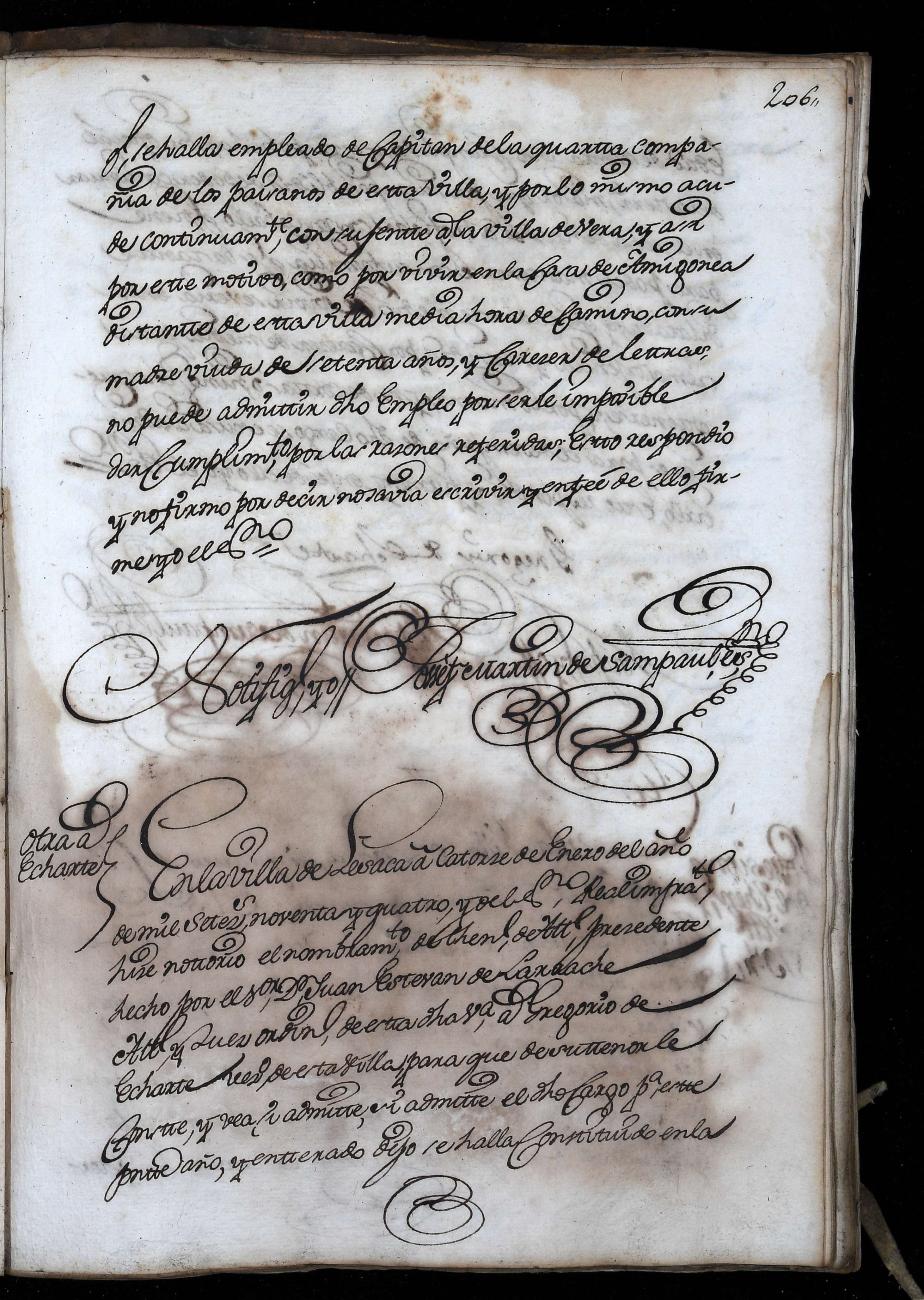 206,,
q.e se halla empleado de Capitan de la quartta compa-
ñia de los paisanos de estta Villa, y por lo mismo acu-
de continuam.te, con su jentte a la villa de Vera, y asi
por estte motivo, como por vivir en la Casa de Amigonea
distantte de estta villa media hora de Camino, con su
madre viuda de settenta años, y Careser de lettras,
no puede admittir dho Empleo por serle imposible
dar Cumplim.to por las razones referidas; Estto respondio
y no firmo por decir no savia escrivir, y en fee de ello fir-
me yo el Ess.no
Notifiq.e yo// Josef Martin de Sampaul, ess.no
Otra a
Echarte
En la villa de Lesaca a Catorse de Enero del año
de mil Setez.s noventa y quatro, yo el Ess.no Real infra.to,
hise nottorio el nombram.to de then.te de Alc.e prezedente
hecho por el s.or D.n Juan Estevan de Larrache
Alc.e y Juez ordin.o de estta dha v.a, a Gregorio de
Echarte vez.o de esta Villa, para que de su ttenor le
Constte, y vea si admitte, o no admitte el dho Cargo p.a estte
pntte año, y entterado dijo se halla Constituido en la